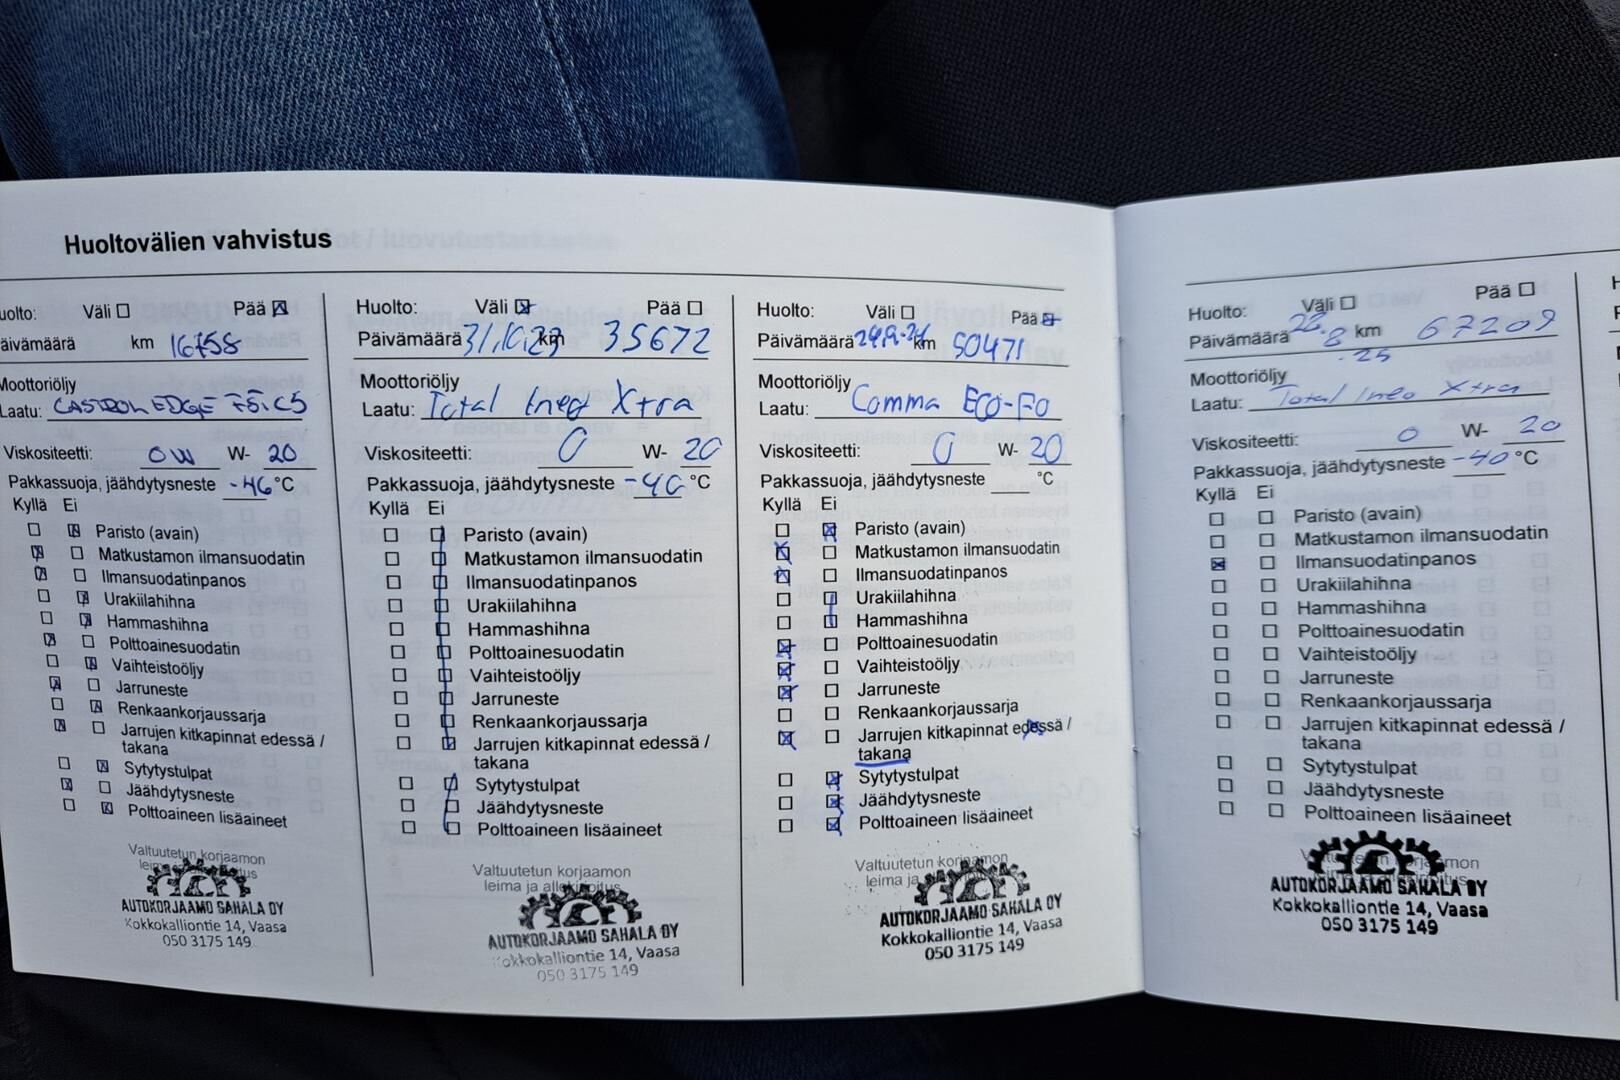 Huoltovälien vahvistus
uolto: Väli Pää
äivämäärä km 16758
Moottoriöljy
Laatu: CASTROL EDGE C5
Viskositeetti: 0W W- 20
Pakkassuoja, jäähdytysneste -46 °C
Kyllä Ei
Paristo (avain)
Matkustamon ilmansuodatin
Ilmansuodatinpanos
Urakiilahihna
Hammashihna
Polttoainesuodatin
Vaihteistoöljy
Jarruneste
Renkaankorjaussarja
Jarrujen kitkapinnat edessä /
takana
Sytytystulpat
Jäähdytysneste
Polttoaineen lisäaineet
Valtuutetun korjaamon
AUTOKORJAAMO SAHALA OY
Kokkokalliontie 14, Vaasa
050 3175 149
Huolto: Väli Pää
Päivämäärä 31.10.23 km 35672
Moottoriöljy
Laatu: Total Ineo Xtra
Viskositeetti: 0 W- 20
Pakkassuoja, jäähdytysneste -40 °C
Kyllä Ei
Paristo (avain)
Matkustamon ilmansuodatin
Ilmansuodatinpanos
Urakiilahihna
Hammashihna
Polttoainesuodatin
Vaihteistoöljy
Jarruneste
Renkaankorjaussarja
Jarrujen kitkapinnat edessä /
takana
Sytytystulpat
Jäähdytysneste
Polttoaineen lisäaineet
Valtuutetun korjaamon
leima ja allekirjoitus
AUTOKORJAAMO SAHALA OY
Kokkokalliontie 14, Vaasa
050 3175 149
Huolto: Väli Pää
Päivämäärä km 50471
Moottoriöljy
Laatu: Comma ECO-FO
Viskositeetti: 0 W- 20
Pakkassuoja, jäähdytysneste °C
Kyllä Ei
Paristo (avain)
Matkustamon ilmansuodatin
Ilmansuodatinpanos
Urakiilahihna
Hammashihna
Polttoainesuodatin
Vaihteistoöljy
Jarruneste
Renkaankorjaussarja
Jarrujen kitkapinnat edessä /
takana
Sytytystulpat
Jäähdytysneste
Polttoaineen lisäaineet
Valtuutetun korjaamon
leima ja
AUTOKORJAAMO SAHALA OY
Kokkokalliontie 14, Vaasa
050 3175 149
Huolto: Väli Pää
Päivämäärä km 67209
-25
Moottoriöljy
Laatu: Total Ineo Xtra
Viskositeetti: 0 W- 20
Pakkassuoja, jäähdytysneste -40 °C
Kyllä Ei
Paristo (avain)
Matkustamon ilmansuodatin
Ilmansuodatinpanos
Urakiilahihna
Hammashihna
Polttoainesuodatin
Vaihteistoöljy
Jarruneste
Renkaankorjaussarja
Jarrujen kitkapinnat edessä /
takana
Sytytystulpat
Jäähdytysneste
Polttoaineen lisäaineet
AUTOKORJAAMO SAHALA OY
Kokkokalliontie 14, Vaasa
050 3175 149